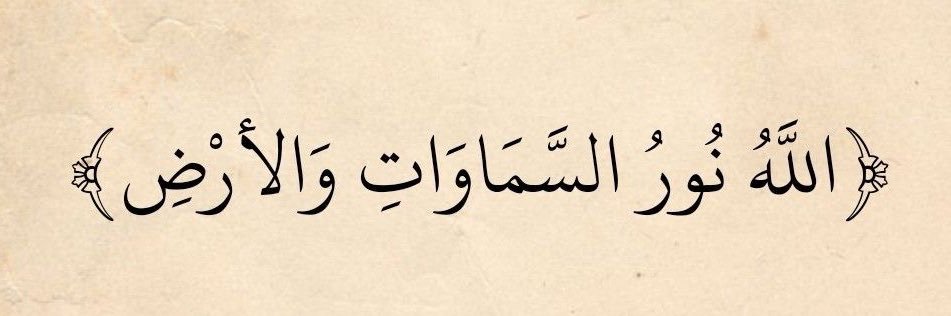 ﴿اللَّهُ نُورُ السَّمَاوَاتِ وَالأرْضِ﴾